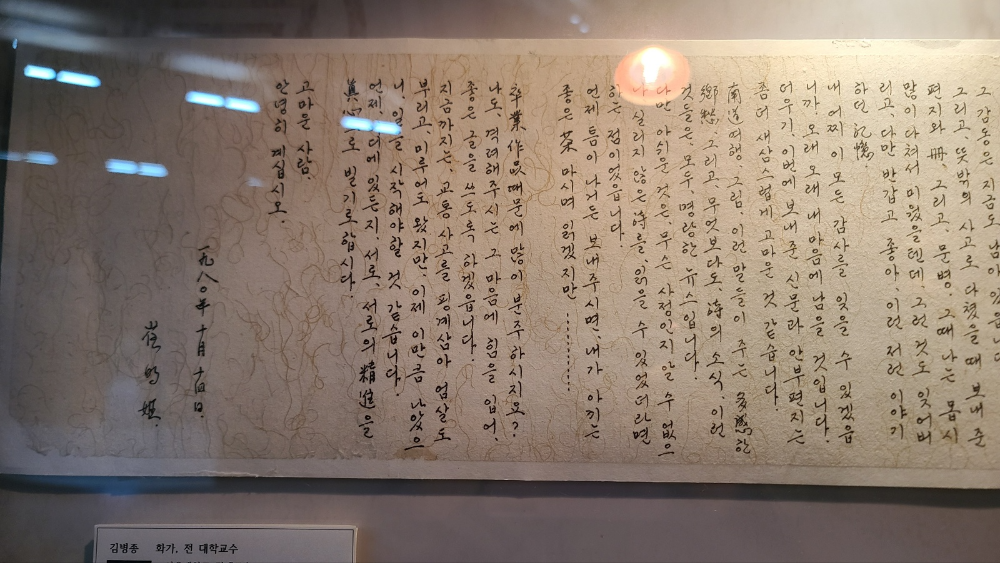 그 감동은 지금도 남아 있읍니다.
그리고, 뜻밖의 사고로 다쳤을때 보내 준
편지와 冊. 그리고, 문병. 그때 나는 몹시
많이 다쳐서 미웠을텐데. 그런 것도 잊어버
리고, 다만 반갑고 좋아 이런 저런 이야기
하던 記憶.
내 어찌 이 모든 감사를 잊을 수 있겠읍
니까. 오래 오래 내 마음에 남을 것입니다.
더우기. 이번에 보내 준 신문과 안부편지는
좀더 새삼스럽게 고마운 것 같습니다.
南道여행. 그림. 이런 말들이 주는 多感한
鄕愁. 그리고, 무엇보다도. 詩의 소식. 이런
것들은. 모두. 명랑한 뉴스입니다.
다만 아쉬운 것은 무슨 사정인지 알 수 없으
나 실리지 않은 詩를. 읽을 수 있었더라면
하는 점이었읍니다.
언제 틈이 나거든 보내주시면. 내가 아끼는
좋은 茶 마시며 읽겠지만.........
卒業作品때문에 많이 분주하시지요?
나도. 격려해주시는 그 마음에 힘을 입어.
좋은 글을 쓰도록 하겠읍니다.
지금까지는. 교통 사고를 핑계삼아 엄살도
부리고. 미루어도 왔지만. 이제 이만큼 나았으
니 일을 시작해야할 것 같습니다.
언제. 어디에 있든지. 서로. 서로의 精進을
眞心으로 빌기로 합시다.
고마운 사람.
안녕히 계십시오.
一九八○年 十月 十四日.
崔明姬.
김병종 화가, 전 대학교수